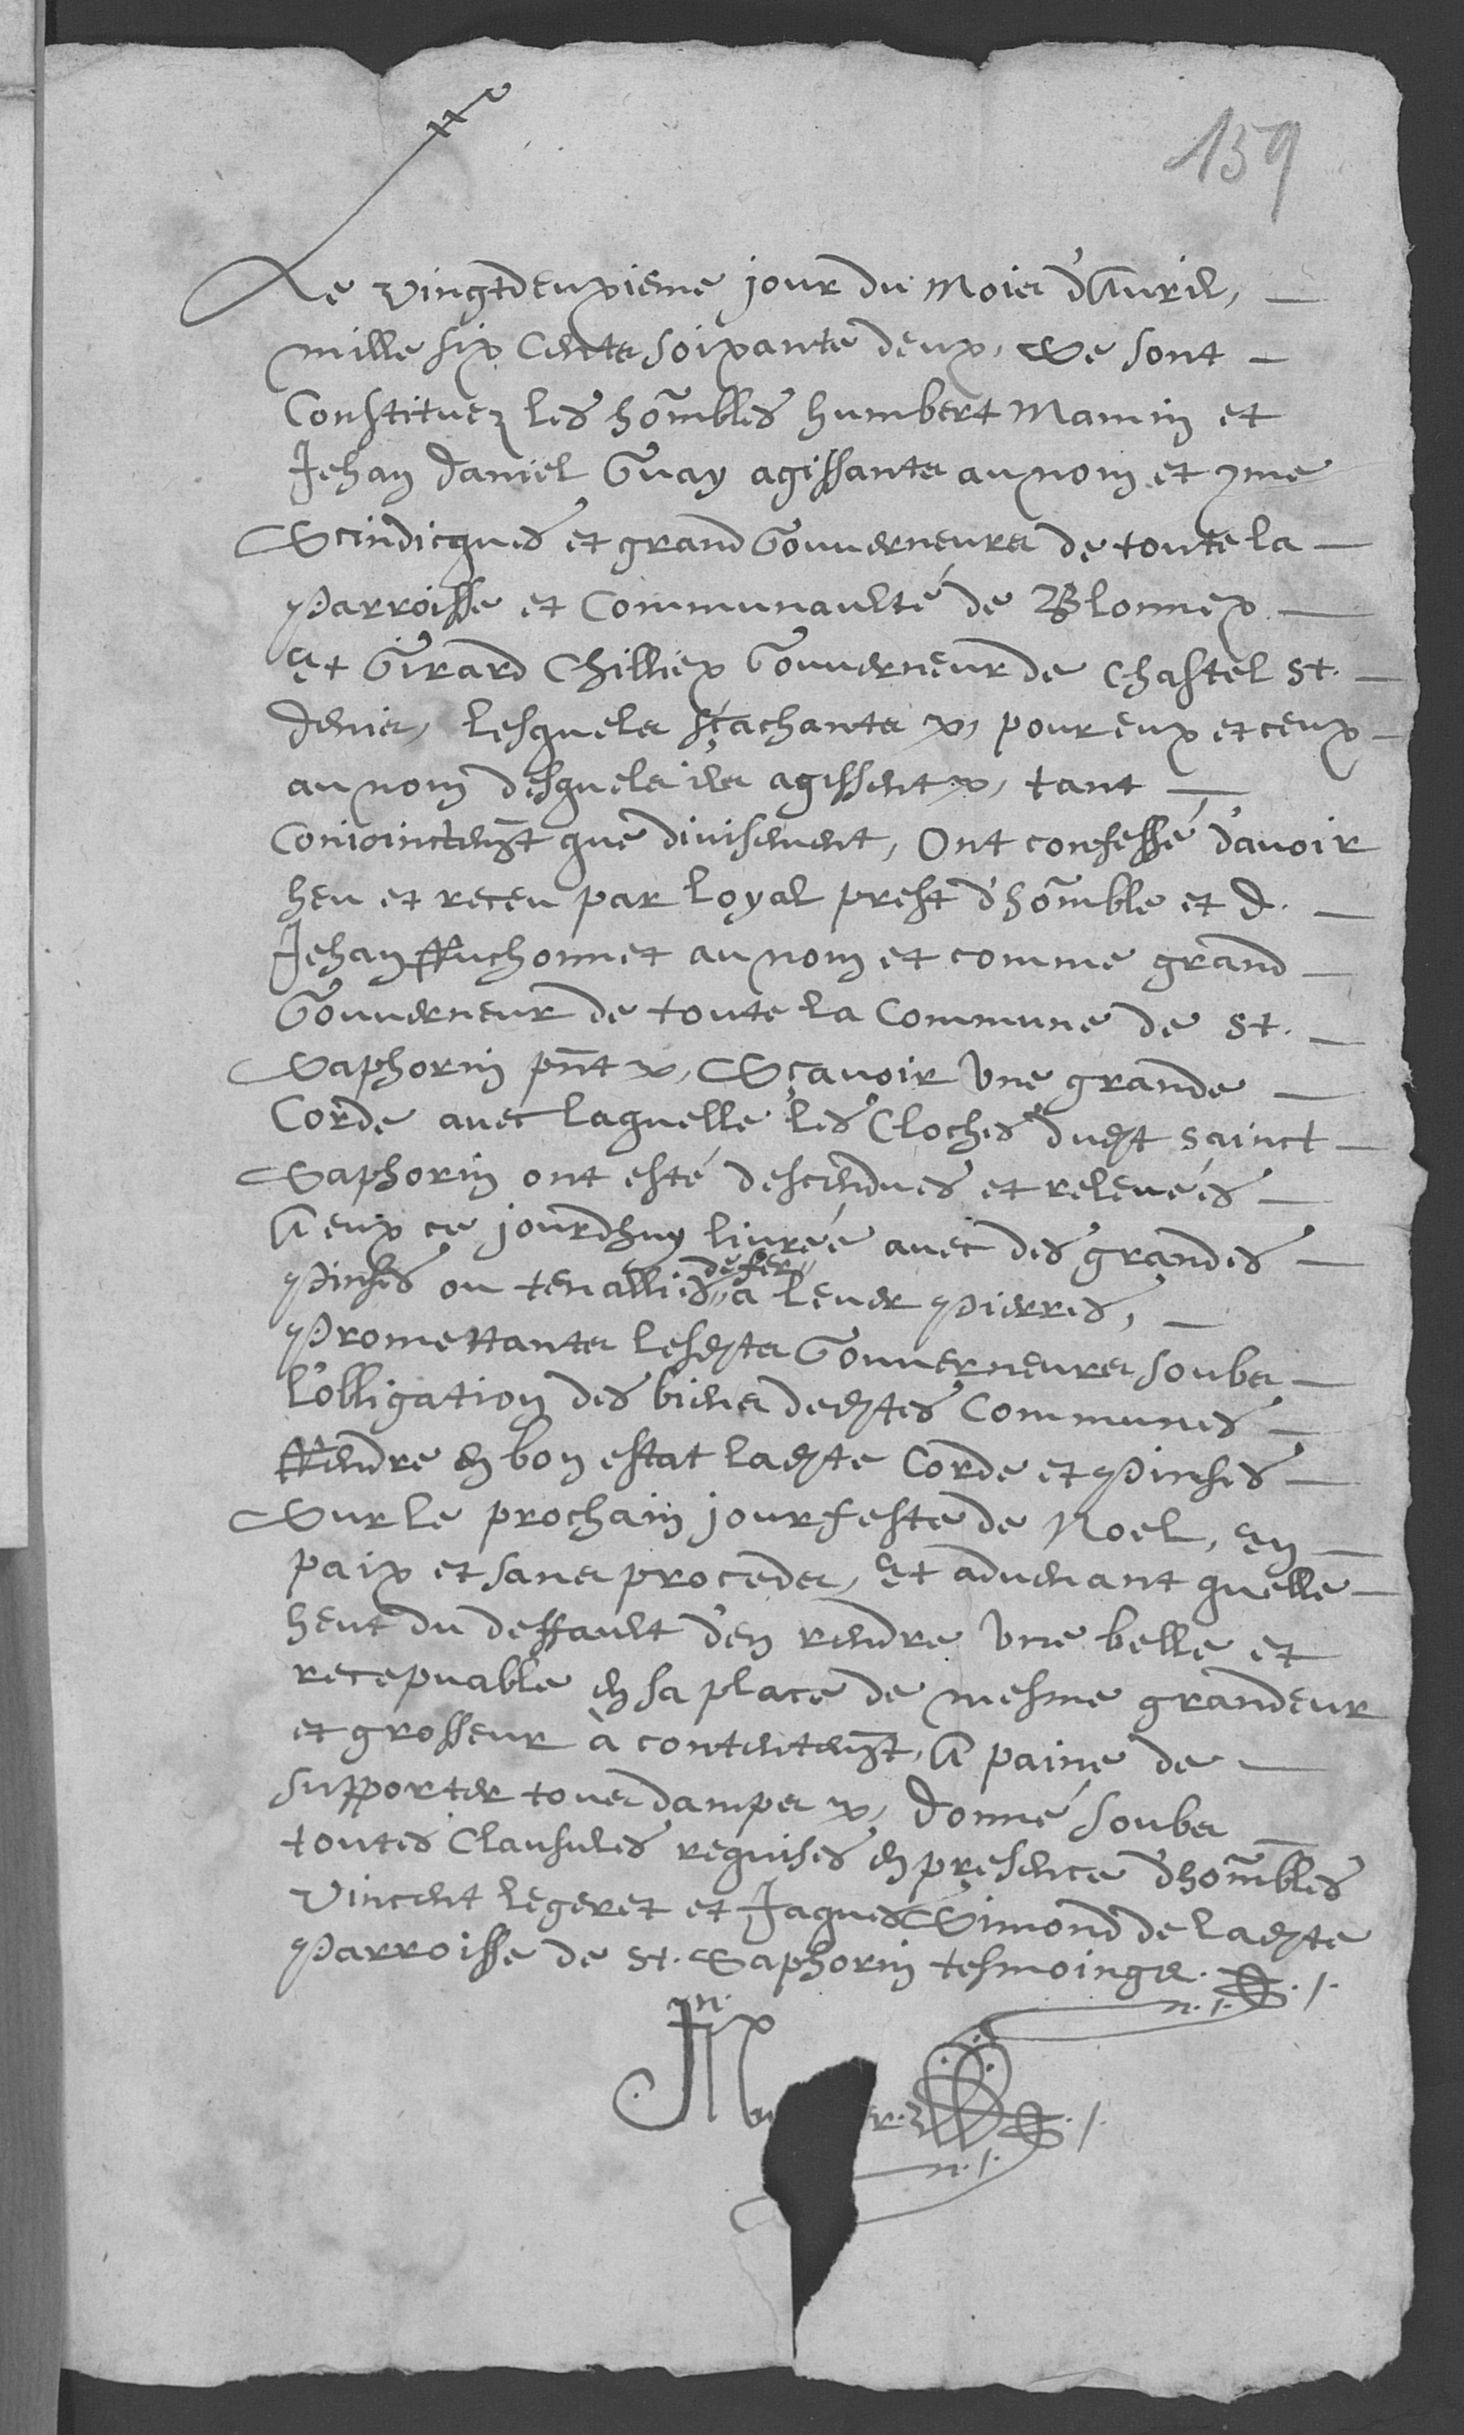 159
Le vingtdeuxieme jour du Mois d'Auril,
mille six Cents soixante deux, Se sont
Constituez les hom̃bles humbert Mamin et
Jehan Daniel Guay agissants au nom et 9me
Scindicques et grand Gouuerneurs de toute la
Parroisse et Communaulté de Blonnex
Et Girard Chilliex Gouuerneur de Chastel St.
Denis, lesquels sçachants &, pour eux et ceux
au nom desquels ils agissent &, tant
Conioinctem̃t que diuisement, Ont confessé d'auoir
heu et receu par loyal prest d'hom̃ble et d.
Jehan Ruchonnet au nom et comme grand
Gouuerneur de toute la Commune de St.
Saphorin pñt &, Sçauoir Vne grande
Corde auec laquelle les Cloches dudit sainct
Saphorin ont esté descendues et releuées
A eux ce jourdhuy liurée auec des grandes
Pinses ou tenallies de fer a leuer Pierres,
Promettants lesdits Gouuerneurs soubs
l'obligation des biens dedites Communes
Rendre en bon estat ladite Corde et Pinses
Sur le prochain jour feste de Noel, en
paix et sans proceder, Et aduenant quelle
heut du deffault d'en rendre Vne belle et
recepuable en sa place de mesme grandeur
et grosseur à contentem̃t, A paine de
supporter tous damps &, Donné soubs
toutes Clausules requises en presence d'hom̃bles
Vincent Legeret et Jaques Simond de ladite
Parroisse de St. Saphorin tesmoings.